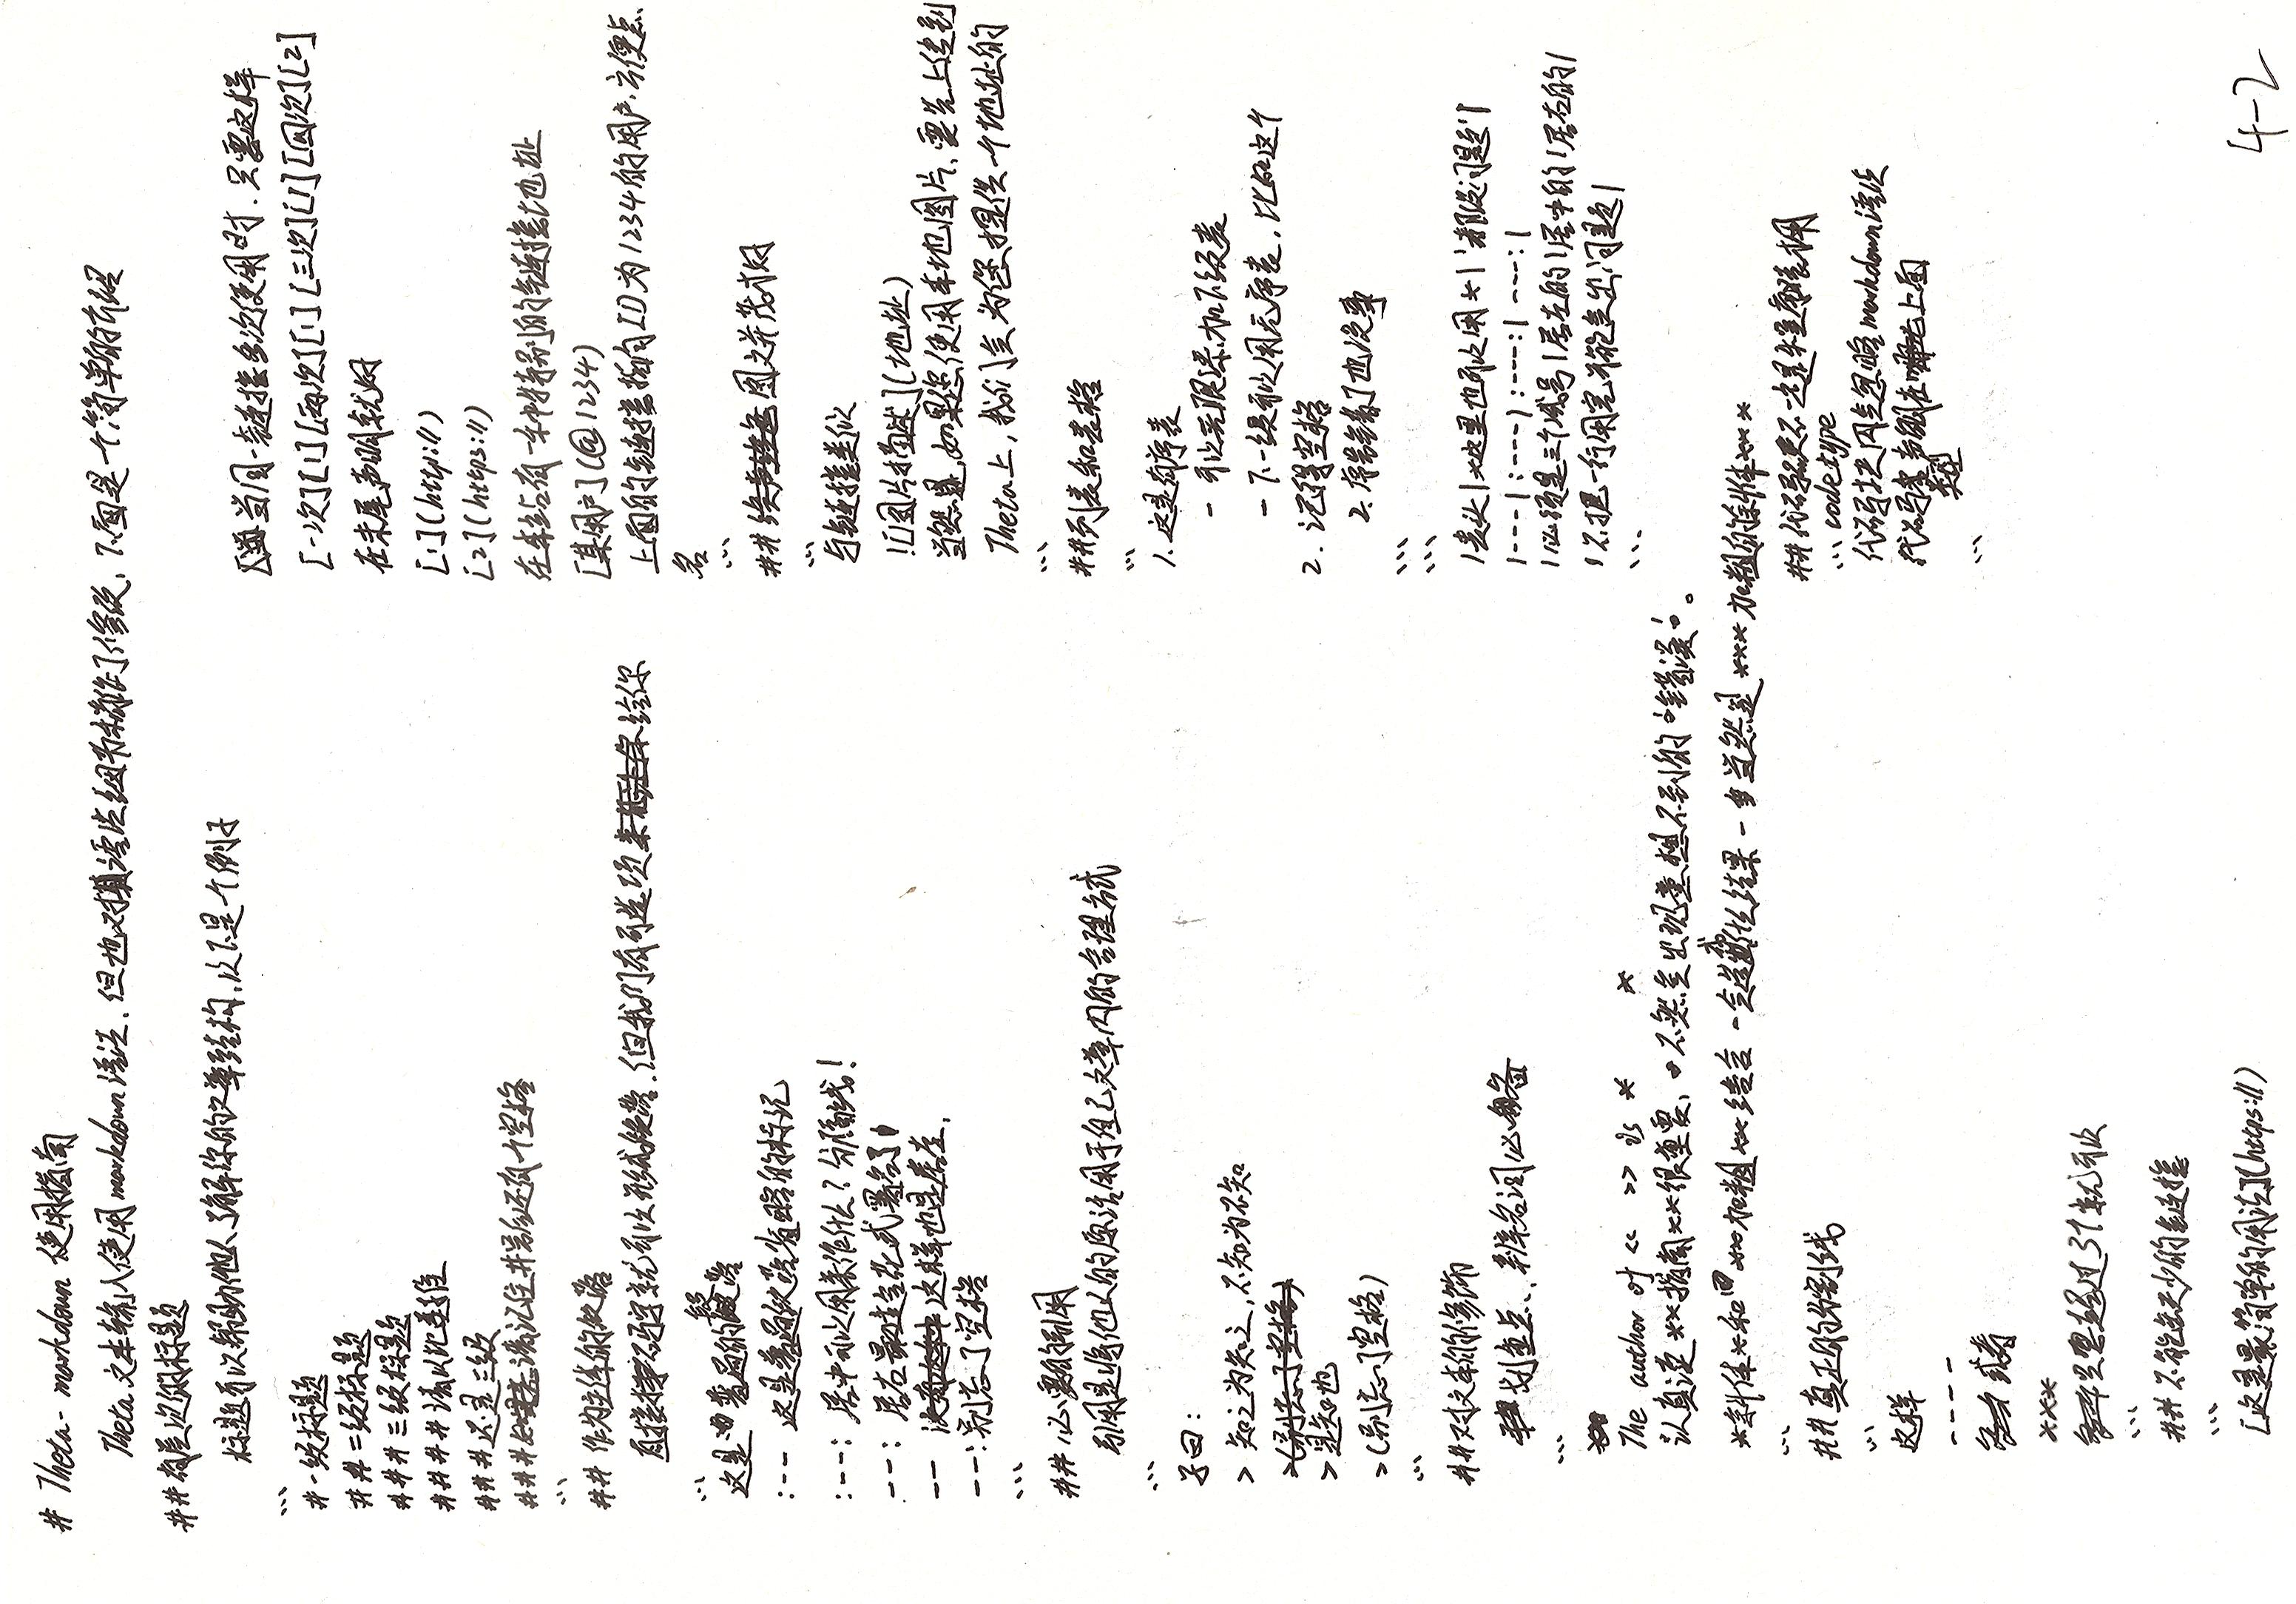 # Theta-markdown 使用指南
Theta 文本输入使用markdown语法,但也对其语法细节稍作了修改,下面是一个简单的介绍
## 有层次的标题
标题可以帮助他人了解你的文章结构,以下是一个例子
```
# 一级标题
## 二级标题
### 三级标题
#### 请以此类推
### 还是三级
### 请记住#号后还有一个空格
```
## 作为主体的段落
直接码字就可以形成段落,但我们有可选项给你
```
这是普通的段落
:-- 这是普通段落省略的标记
:--: 居中可以用来作什么?分隔线!
--: 居右最适合花式署名了
-- 这样也是居左,
--:别忘了空格
```
## 必要的引用
引用是将他人的原话用于自己文章内的合理方式
```
子曰:
> 知之为知之,不知为不知
> 是知也
>(别忘了空格)
```
## 对文本的修饰
划重点、辨名词必备
```
The author of << >> is * *
认真读**指南**很重要,不然会出现意想不到的`错误`。
*斜体*和**加粗**结合-会造成什么结果-当然是***加粗的斜体***
```
## 真正的分割线
```
这样
----
或者
***
只要超过3个就可以
```
## 不能缺少的链接
```
[这是最简单的用法](https://)
当同一链接多次使用时,只要这样
[一次][1][两次][1][三次][1][四次][2]
在末尾声明就好
[1](http://)
[2](https://)
在本站有一种特别的链接地址
[某用户](@1234)
上面的链接指向ID为1234的用户,方便点
名
```
## 图文并茂才好
```
与链接类似
![图片描述](地址)
当然是,如果您使用本地图片,需先上传到
Theta上,我们会为您提供一个地址的
```
## 列表和表格
```
1. 这是有序表
- 可以无限添加下级表
- 下一级可以用无序表,比如这个
2. 记得空格
2. 序号错了也没事
```
```
|表头|*这里也可以用*|`都没问题`|
|---|:---|:---:|---:|
|必须是三个减号|居左的|居中的|居右的|
|不把一行用完可能会出问题|
```
## 代码不一定是程序猿用
```codetype
代码块内会忽略markdown语法
代码类型声明在上面
```
4-2